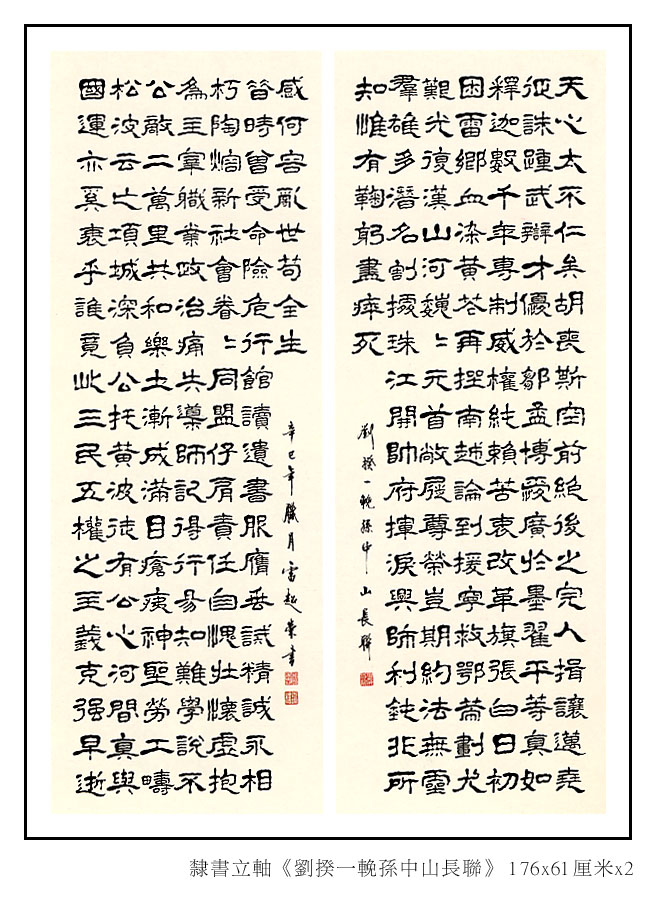 天心太不仁矣胡喪斯空前絕後之完人揖讓邁堯
征誅踵武辯才優於鄒孟博愛廣於墨翟平等真如
釋迦數千年專制威權純賴苦衷改革旗張白日初
困雷鄉血染黃花再南越論到援寧救鄂籌劃尤
艱光復漢山河巍〻元首敝屣尊榮豈期約法無靈
羣雄多潛名割據珠江開帥府揮淚興師利鈍非所
知惟有鞠躬盡瘁死
劉揆一輓孫中山長聯
國運亦奚衰乎誰竟此三民五權之主義克强早逝
松波云亡項城深負公托黃波徒有公心河間真與
公敵二萬里共和樂土漸成滿目瘡痍神聖勞工疇
為主宰職業政治痛失導師記得行易知難學說不
朽陶熔新社會眷〻同盟仔肩責任自愧壯懷虛抱
昔時曾受命險危行館讀遺書服膺垂誡精誠永相
感何容亂世苟全生
辛巳年臘月雷超榮書
隸書立軸《劉揆一輓孫中山長聯》 176x61厘米x2